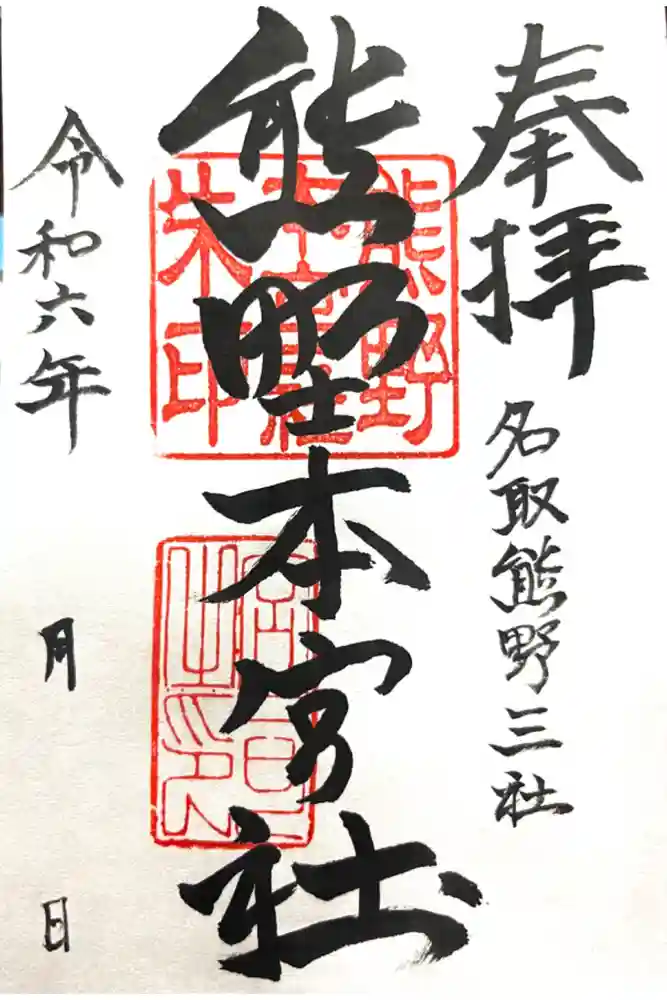 奉拝
名取熊野三社
熊野本宮社
熊野
本宮社
朱印
宮司
之印
令和六年
月
日